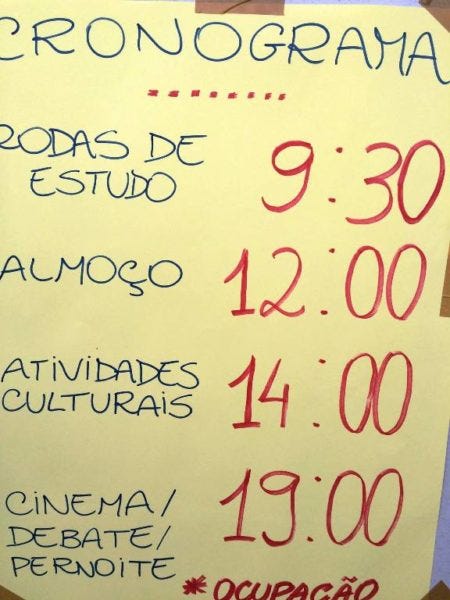 CRONOGRAMA
RODAS DE 9:30
ESTUDO
ALMOÇO 12:00
ATIVIDADES 14:00
CULTURAIS
CINEMA/ 19:00
DEBATE/
PERNOITE
* OCUPAÇÃO